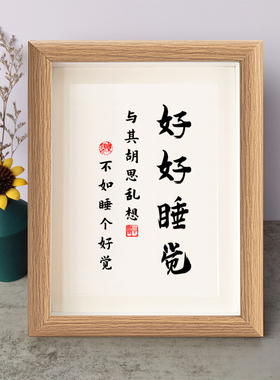 好好睡觉
与其胡思乱想
不如睡个好觉